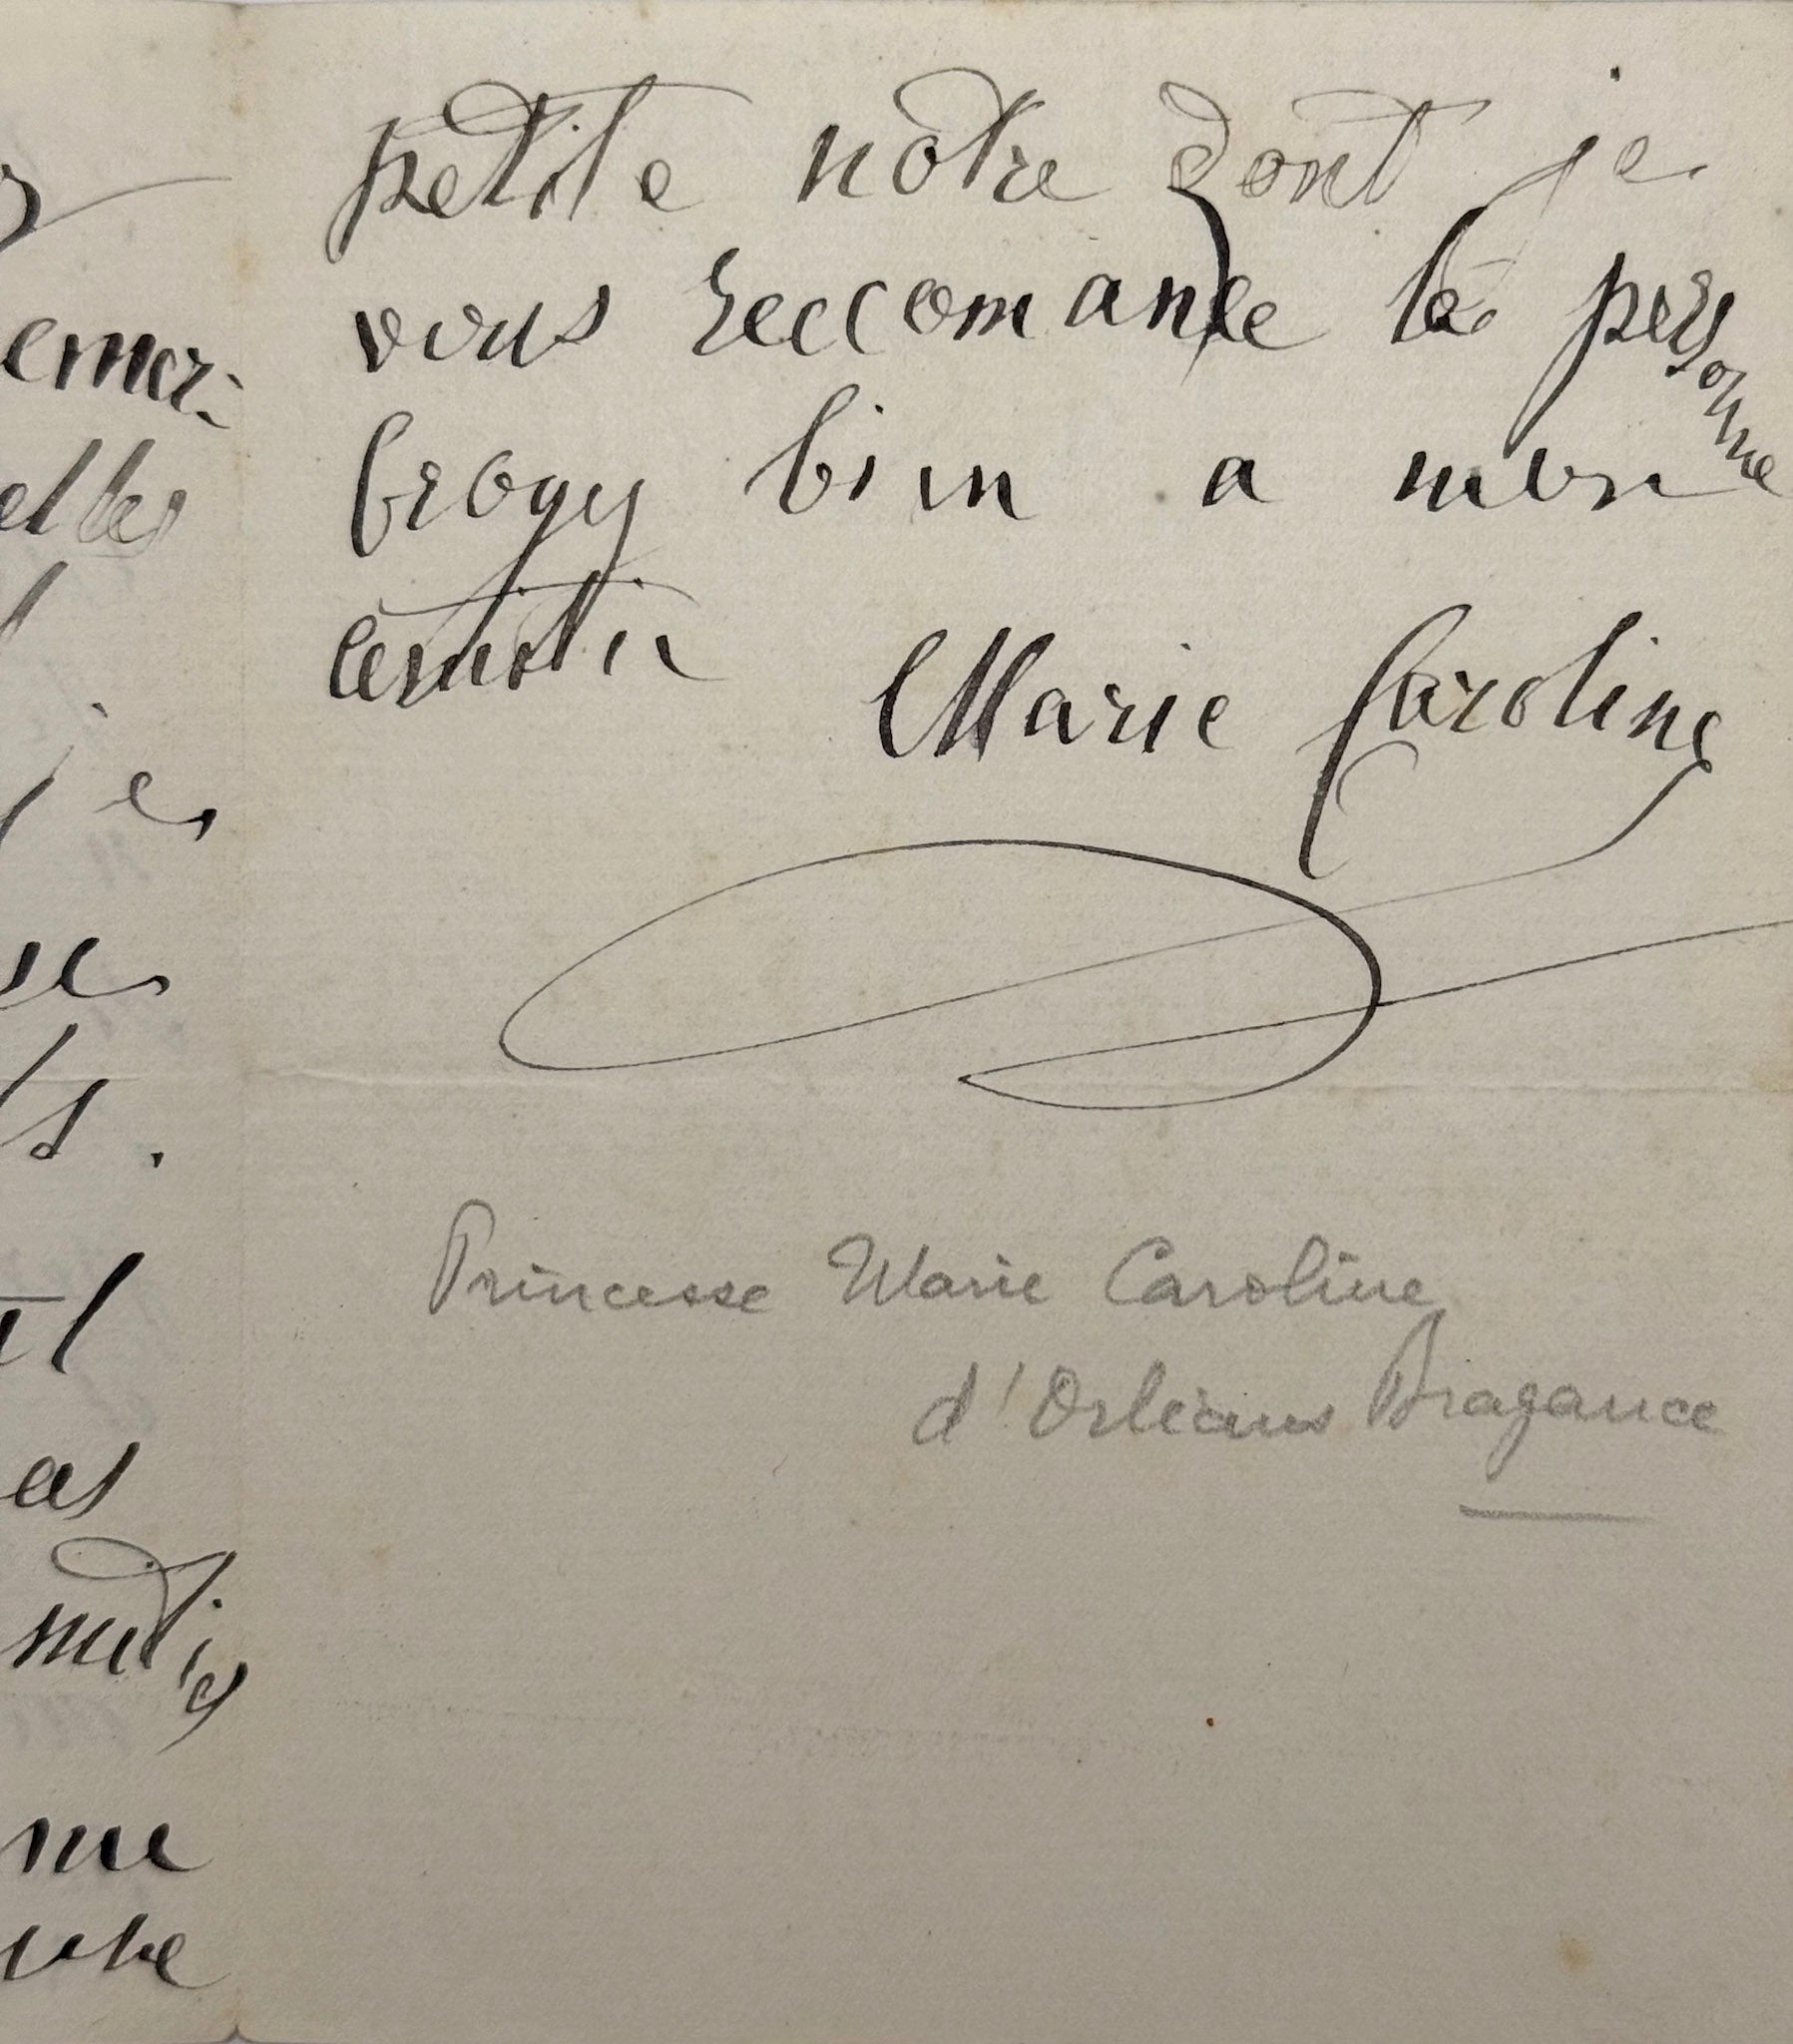 emer:
elles
je
se
ts.
il
as
me
petite notre dont je
vous reccomande la personne
Croyy bien a mon
amitie
Marie Caroline
Princesse Marie Caroline
d'Orléans Bragance